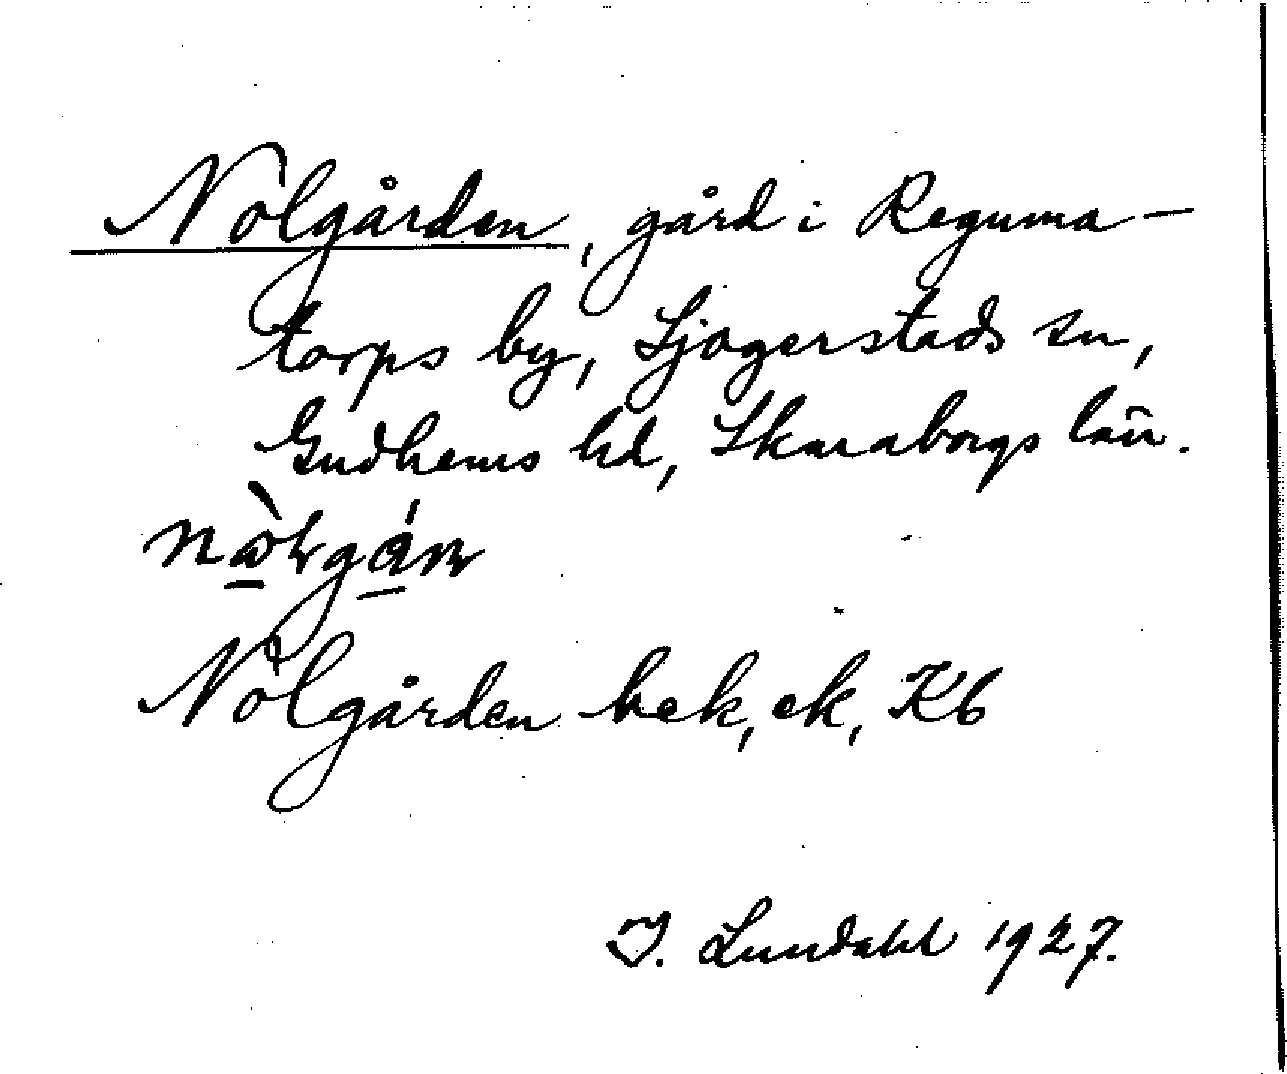 Nolgården, gård i Reguma-
torps by, Sjogerstads sn,
Gudhems hd, Skaraborgs län.
Nolgården bek, ek, Kb
I. Lundahl 1927.